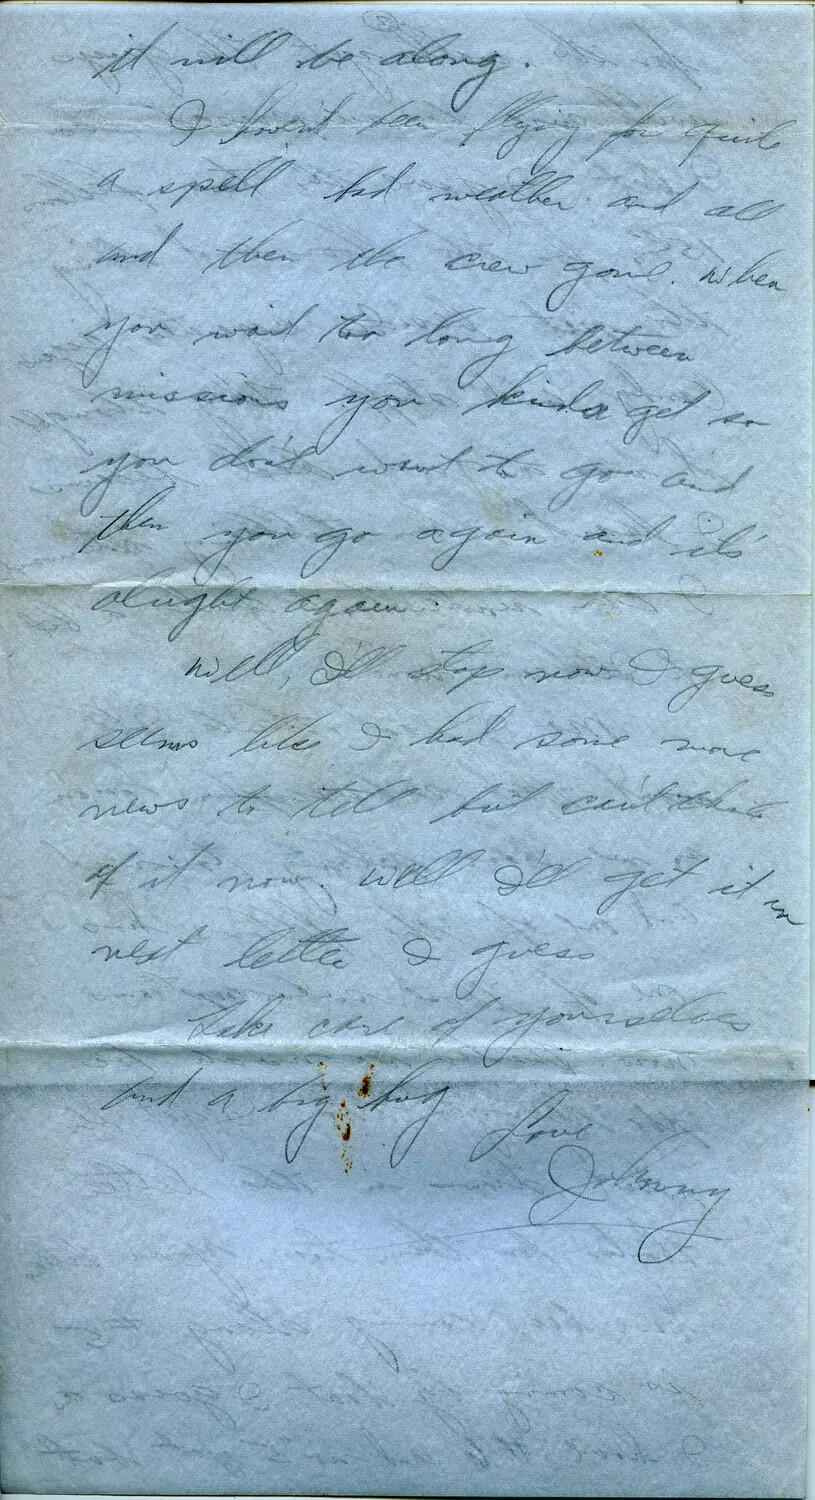 it will be along.
I haven't been flying for quite
a spell bad weather and all
and then the crew gone. When
you wait too long between
missions you kinda get so
you don't want to go and
then you go again and it's
alright again.
Well, I'll stop now I guess
seems like I had some more
news to tell but can't think
of it now. Well I'll get it in
next letter I guess
Take care of yourselves
and a big hug
Love
Johnny